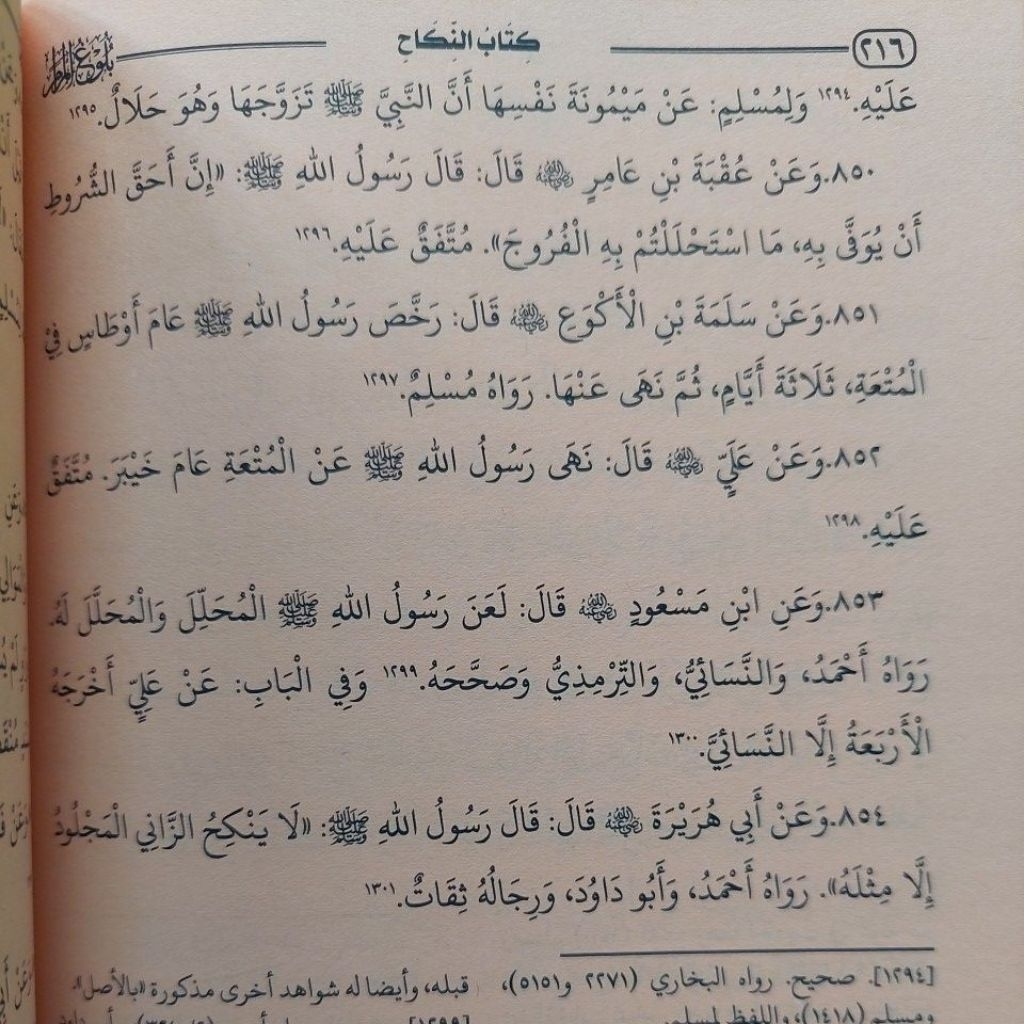 ٢١٦
كِتَابُ النِّكَاحِ
بُلُوغُ الْمَرَامِ
عَلَيْهِ.١٢٩٤ وَلِمُسْلِمٍ: عَنْ مَيْمُونَةَ نَفْسِهَا أَنَّ النَّبِيَّ ﷺ تَزَوَّجَهَا وَهُوَ حَلَالٌ.١٢٩٥
٨٥٠.وَعَنْ عُقْبَةَ بْنِ عَامِرٍ ﵁ قَالَ: قَالَ رَسُولُ اللهِ ﷺ: «إِنَّ أَحَقَّ الشُّرُوطِ
أَنْ يُوَفَّى بِهِ، مَا اسْتَحْلَلْتُمْ بِهِ الْفُرُوجَ». مُتَّفَقٌ عَلَيْهِ.١٢٩٦
٨٥١.وَعَنْ سَلَمَةَ بْنِ الْأَكْوَعِ ﵁ قَالَ: رَخَّصَ رَسُولُ اللهِ ﷺ عَامَ أَوْطَاسٍ فِيْ
الْمُتْعَةِ، ثَلَاثَةَ أَيَّامٍ، ثُمَّ نَهَى عَنْهَا. رَوَاهُ مُسْلِمٌ.١٢٩٧
٨٥٢.وَعَنْ عَلَيٍّ ﵁ قَالَ: نَهَى رَسُولُ اللهِ ﷺ عَنْ الْمُتْعَةِ عَامَ خَيْبَرَ. مُتَّفَقٌ
عَلَيْهِ.١٢٩٨
٨٥٣.وَعَنِ ابْنِ مَسْعُودٍ ﵁ قَالَ: لَعَنَ رَسُولُ اللهِ ﷺ الْمُحَلِّلَ وَالْمُحَلَّلَ لَهُ.
رَوَاهُ أَحْمَدُ، وَالنَّسَائِيُّ، وَالتِّرْمِذِيُّ وَصَحَّحَهُ.١٢٩٩ وَفِي الْبَابِ: عَنْ عَلِيٍّ أَخْرَجَهُ
الْأَرْبَعَةُ إِلَّا النَّسَائِيَّ.١٣٠٠
٨٥٤.وَعَنْ أَبِي هُرَيْرَةَ ﵁ قَالَ: قَالَ رَسُولُ اللهِ ﷺ: «لَا يَنْكِحُ الزَّانِي الْمَجْلُودُ
إِلَّا مِثْلَهُ». رَوَاهُ أَحْمَدُ، وَأَبُو دَاوُدَ، وَرِجَالُهُ ثِقَاتٌ.١٣٠١
[١٢٩٤]. صحيح. رواه البخاري (٢٢٧١ و٥١٥١)،
ومسلم (١٤١٨)، واللفظ لمسلم.
قبله، وأيضا له شواهد أخرى مذكورة «بالأصل».